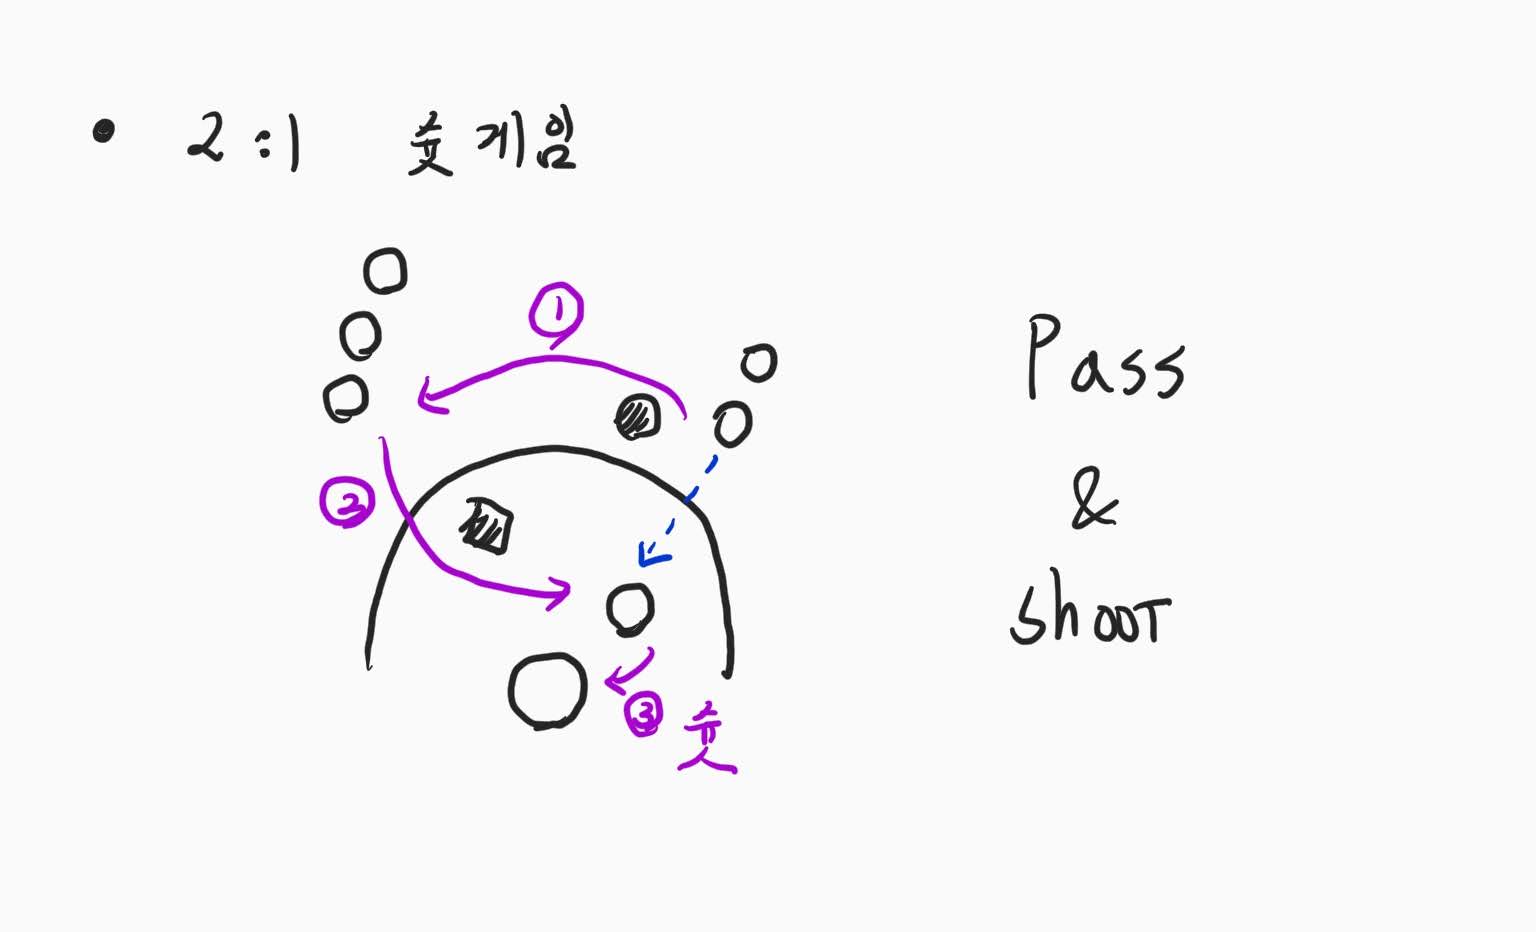 • 2:1 슛 게임
①
②
③ 슛
Pass
&
shoot